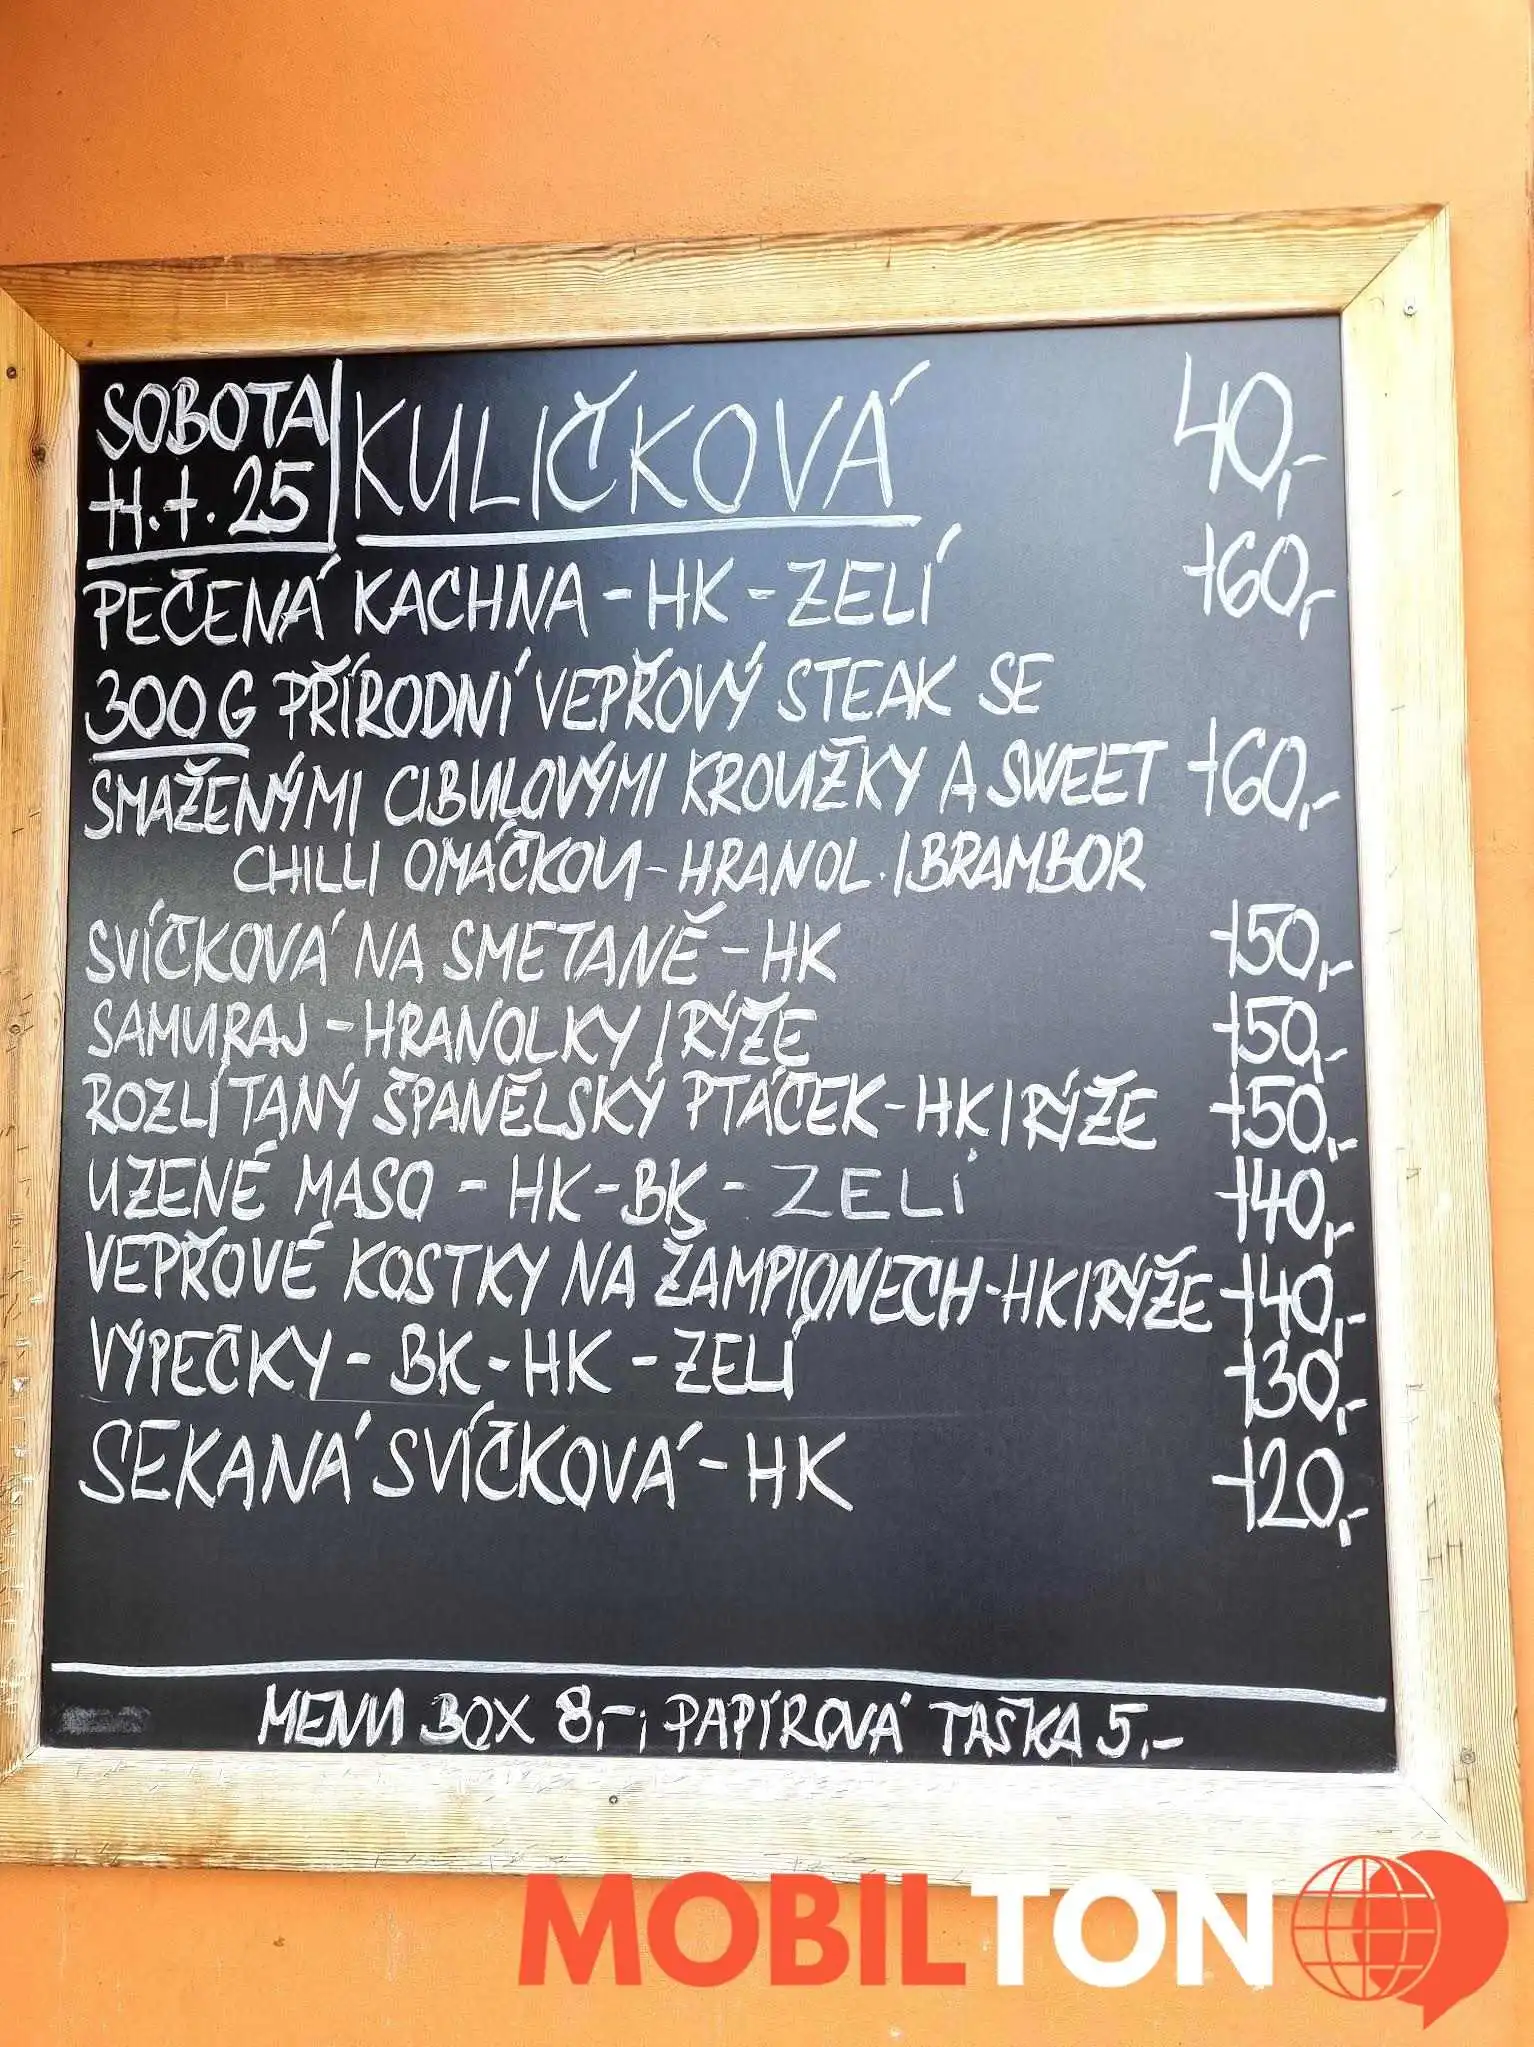 SOBOTA
11.1.25
KULIČKOVÁ 40,-
PEČENÁ KACHNA - HK - ZELÍ 160,-
300G PŘÍRODNÍ VEPŘOVÝ STEAK SE
SMAŽENÝMI CIBULOVÝMI KROUŽKY A SWEET 160,-
CHILLI OMÁČKOU - HRANOL. / BRAMBOR
SVÍČKOVÁ NA SMETANĚ - HK 150,-
SAMURAJ - HRANOLKY / RÝŽE 150,-
ROZLÍTANÝ ŠPANĚLSKÝ PTÁČEK - HK / RÝŽE 150,-
UZENÉ MASO - HK - BK - ZELÍ 140,-
VEPŘOVÉ KOSTKY NA ŽAMPIONECH - HK / RÝŽE 140,-
VÝPEČKY - BK - HK - ZELÍ 130,-
SEKANÁ SVÍČKOVÁ - HK 120,-
MENU BOX 8,- ; PAPÍROVÁ TAŠKA 5,-
MOBILTON